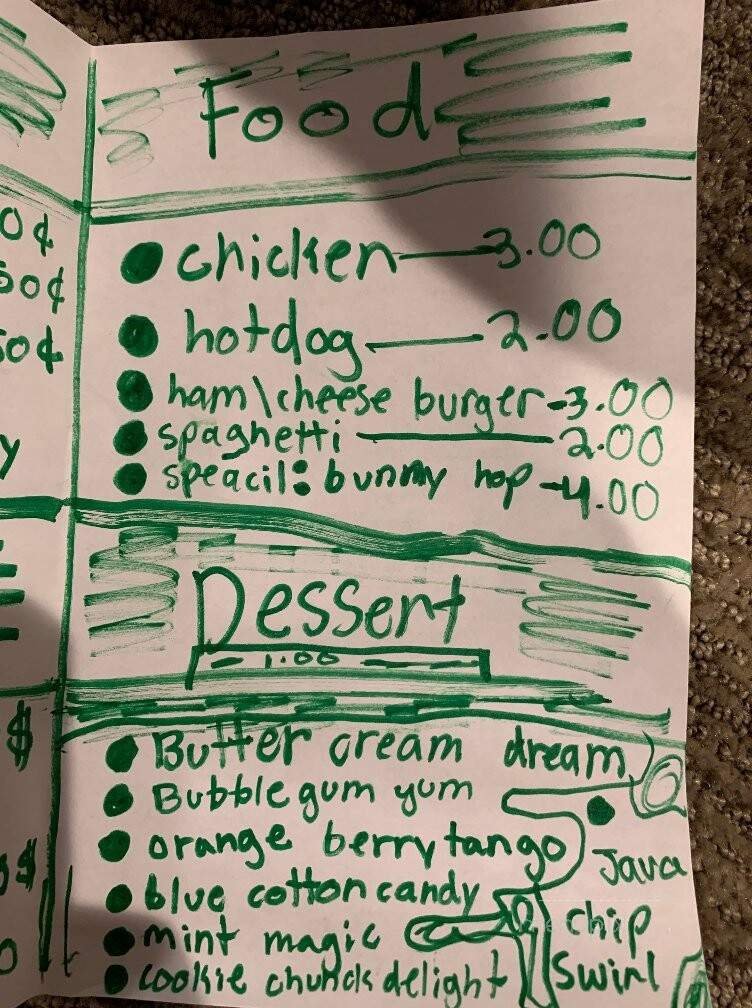 Food
0¢
50¢
50¢
chicken—3.00
hotdog—2.00
ham\cheese burger-3.00
spaghetti—2.00
speacil: bunny hop-4.00
y
Dessert
- 1.00 —
$
Butter cream dream
Bubblegum yum
orange berry tango
blue cotton candy
mint magic
cookie chunck delight
Java
chip
swirl
$